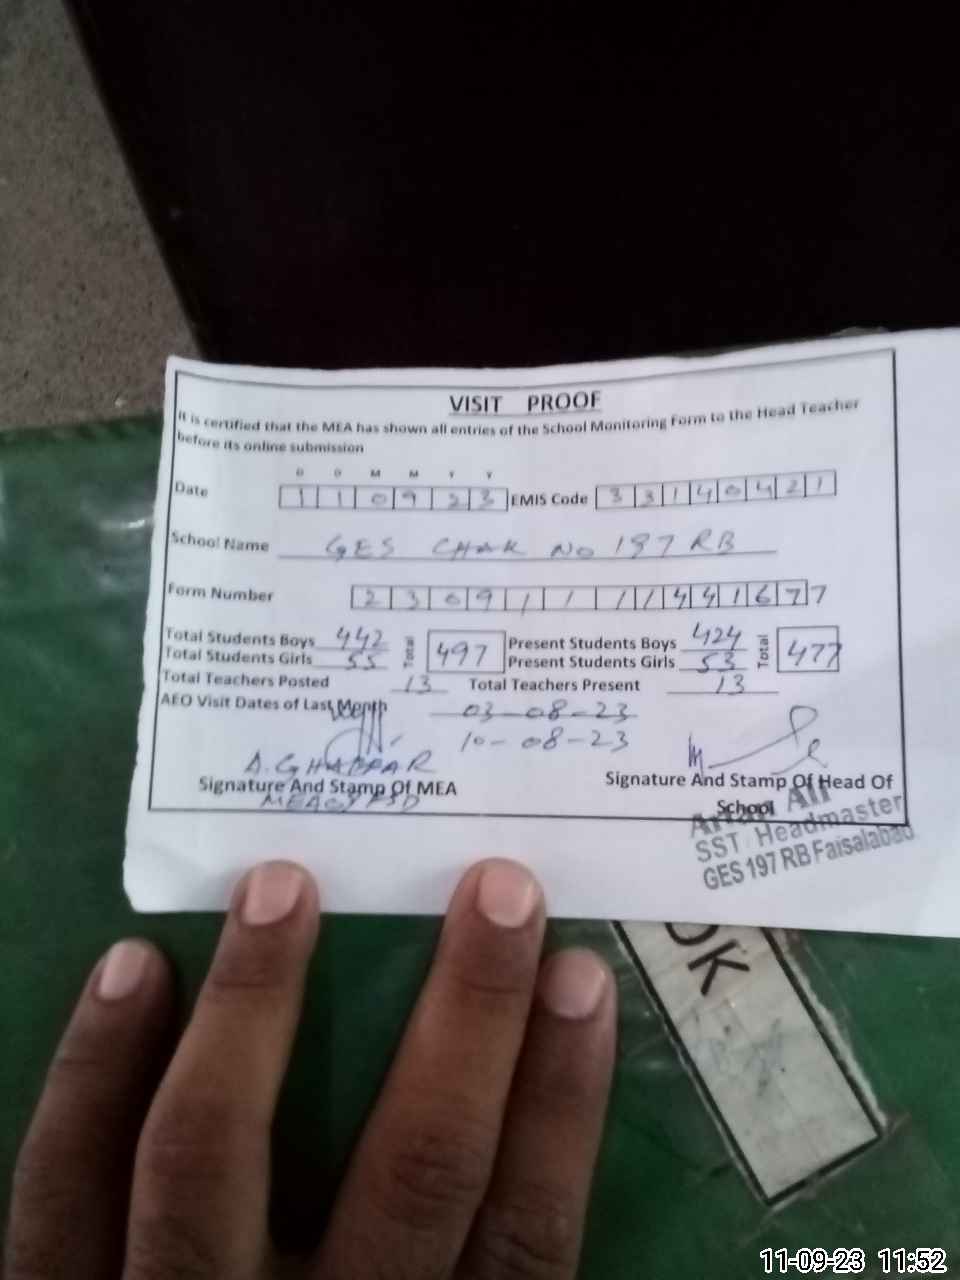 VISIT PROOF
It is certified that the MEA has shown all entries of the School Monitoring Form to the Head Teacher
before its online submission
D D M M Y Y
Date 1 1 0 9 2 3 EMIS Code 3 3 1 4 0 4 2 1
School Name GES CHAK NO 197 RB
Form Number 2 3 0 9 1 1 1 1 4 4 1 6 7 7
Total Students Boys 442 Total 497 Present Students Boys 424 Total 477
Total Students Girls 55 Present Students Girls 53
Total Teachers Posted 13 Total Teachers Present 13
AEO Visit Dates of Last Month 03-08-23
10-08-23
A. GHAFFAR
Signature And Stamp Of MEA
Signature And Stamp Of Head Of
School
Ali
SST / Headmaster
GES 197 RB Faisalabad
OK
11-09-23 11:52